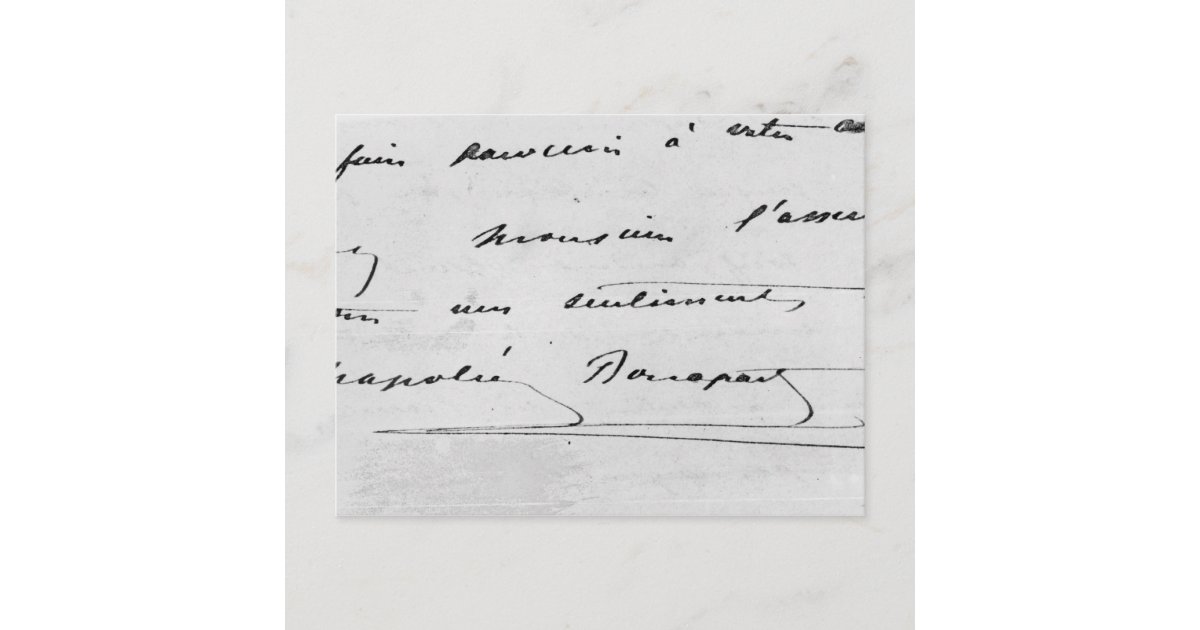 faire parvenir à votre
Monsieur l'assu
mes sentiments
Napoléon Bonaparte